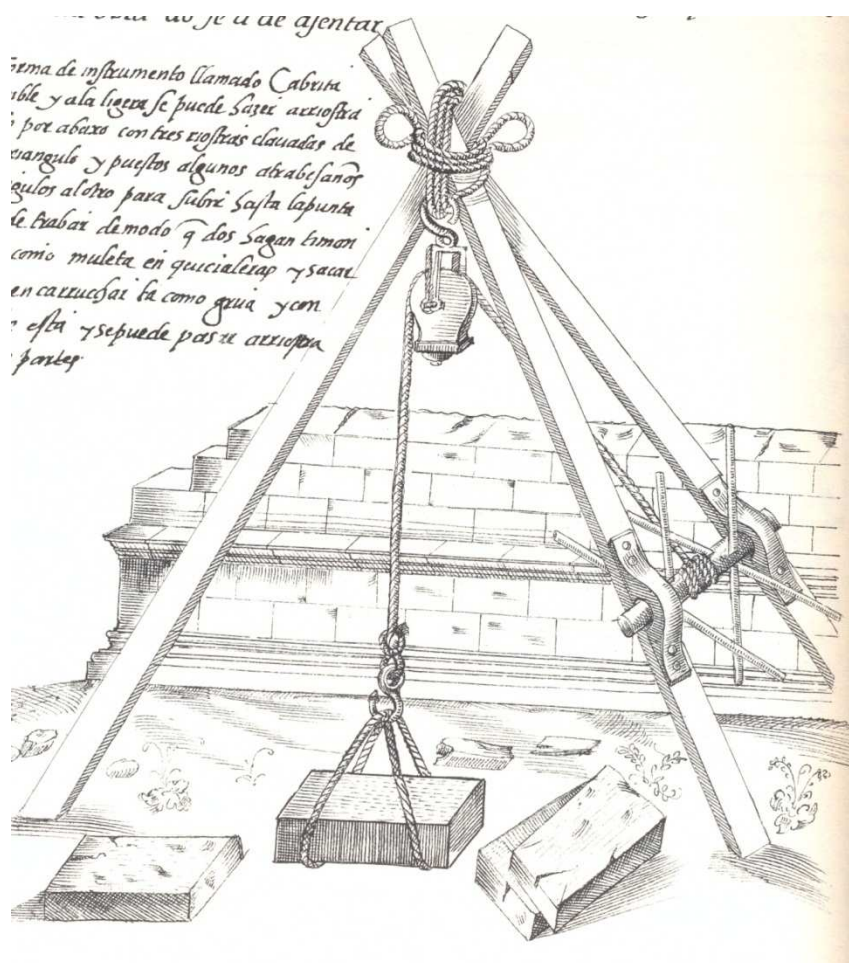 do se a de asentar
forma de instrumento llamado Cabrita
ible y ala ligera se puede hazer arriostra
por abaxo con tres riostras clauadas de
riangulo y puestos algunos atrabesaños
gulos al otro para subir hasta la punta
de trabar de modo q̃ dos hagan timon
como muleta en quicialeras y sacar
en carruchar ta como grua y con
esta y se puede pasar arriostra
partes